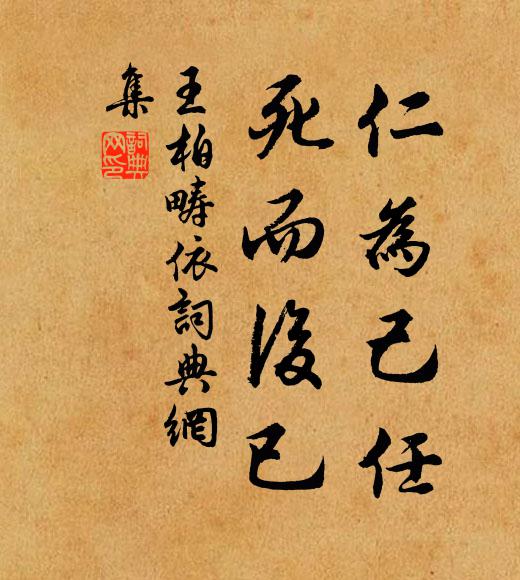 仁為己任
死而後已
王柏疇依詞典網
集
詞典
网印